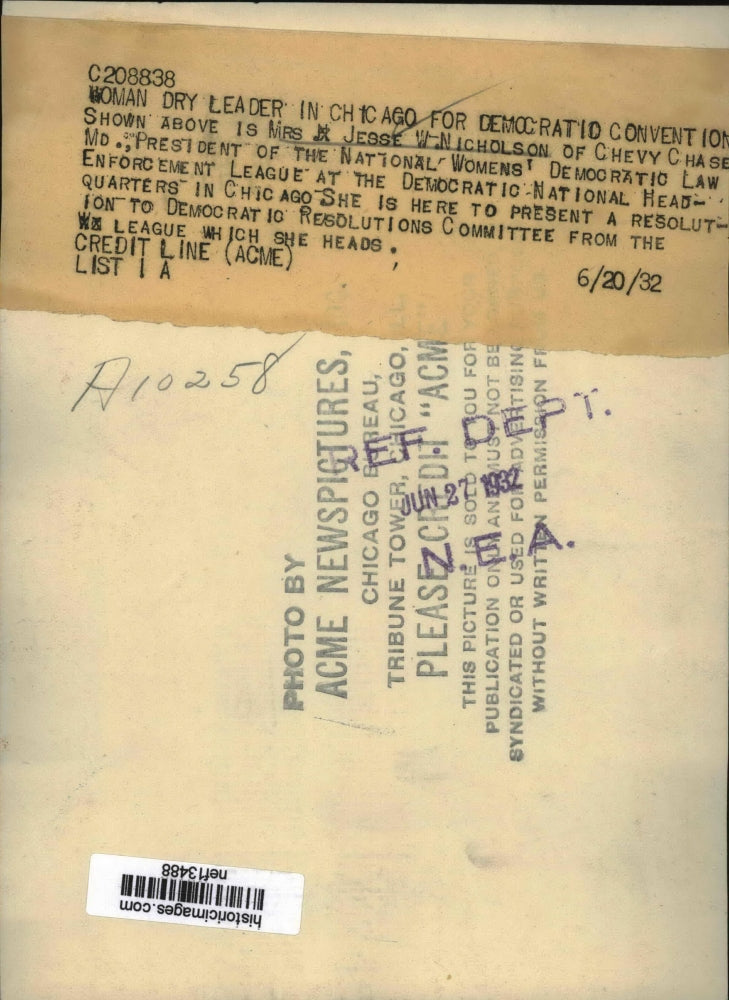 C208838
WOMAN DRY LEADER IN CHICAGO FOR DEMOCRATIC CONVENTION
SHOWN ABOVE IS MRS JESSE W NICHOLSON OF CHEVY CHASE
MD., PRESIDENT OF THE NATIONAL WOMENS' DEMOCRATIC LAW
ENFORCEMENT LEAGUE AT THE DEMOCRATIC NATIONAL HEAD-
QUARTERS IN CHICAGO SHE IS HERE TO PRESENT A RESOLUT-
ION TO DEMOCRATIC RESOLUTIONS COMMITTEE FROM THE
LEAGUE WHICH SHE HEADS.
CREDIT LINE (ACME)
LIST 1 A 6/20/32
A10258
PHOTO BY
ACME NEWSPICTURES,
CHICAGO BUREAU,
TRIBUNE TOWER, CHICAGO,
PLEASE CREDIT "ACME
THIS PICTURE IS SOLD TO YOU FOR
PUBLICATION ONLY AND MUST NOT BE
SYNDICATED OR USED FOR ADVERTISING
WITHOUT WRITTEN PERMISSION
REF. DEPT.
JUN 27 1932
N.E.A.
historicimages.com
nef13488